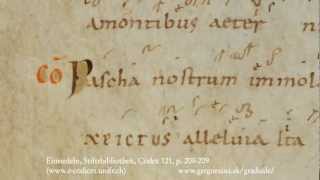 amontibus aeter n
CÕ Pascha nostrum immola
xpictus alleluia Ita
Einsiedeln, Stiftsbibliothek, Codex 121, p. 208-209
(www.e-codices.unifr.ch) www.gregorianik.uk/graduale/